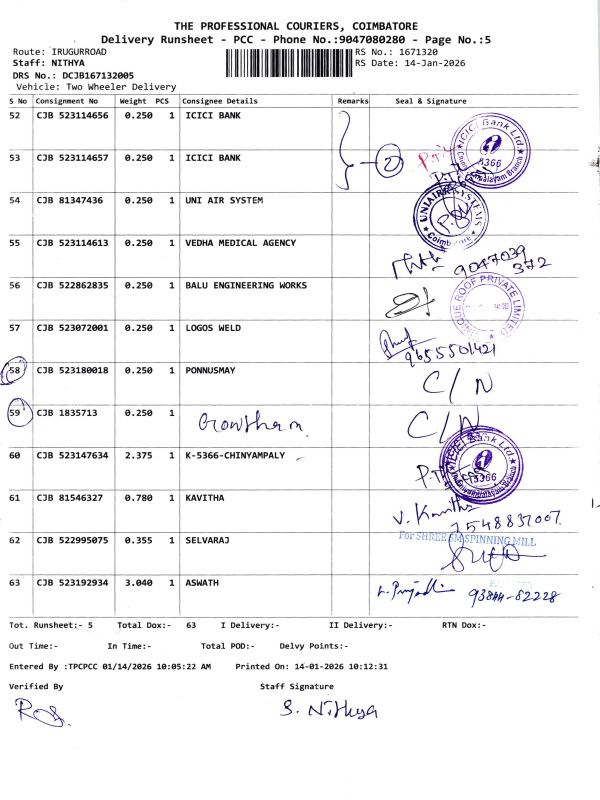 THE PROFESSIONAL COURIERS, COIMBATORE
Delivery Runsheet - PCC - Phone No.:9047080280 - Page No.:5
Route: IRUGURROAD RS No.: 1671320
Staff: NITHYA RS Date: 14-Jan-2026
DRS No.: DCJB167132005
Vehicle: Two Wheeler Delivery
S No Consignment No Weight PCS Consignee Details Remarks Seal & Signature
52 CJB 523114656 0.250 1 ICICI BANK
ICICI Bank Ltd
53 CJB 523114657 0.250 1 ICICI BANK 2
Branch
54 CJB 81347436 0.250 1 UNI AIR SYSTEM
UNIAIR SYSTEMS
55 CJB 523114613 0.250 1 VEDHA MEDICAL AGENCY
9047039
372
56 CJB 522862835 0.250 1 BALU ENGINEERING WORKS
UNIQUE ROOF PRIVATE LIMITED
57 CJB 523072001 0.250 1 LOGOS WELD
9655501421
58 CJB 523180018 0.250 1 PONNUSMAY C/N
59 CJB 1835713 0.250 1 Gowtham. C/N
60 CJB 523147634 2.375 1 K-5366-CHINYAMPALY
ICICI Bank Ltd
61 CJB 81546327 0.780 1 KAVITHA V. Kavitha
7548837007.
62 CJB 522995075 0.355 1 SELVARAJ
For SHREE SM SPINNING MILL
63 CJB 523192934 3.040 1 ASWATH 93844-82228
Tot. Runsheet:- 5 Total Dox:- 63 I Delivery:- II Delivery:- RTN Dox:-
Out Time:- In Time:- Total POD:- Delvy Points:-
Entered By :TPCPCC 01/14/2026 10:05:22 AM Printed On: 14-01-2026 10:12:31
Verified By Staff Signature
S. Nithya